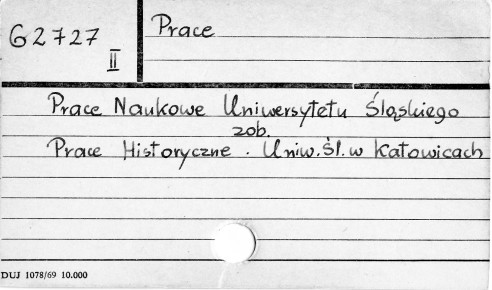 G 2727
II
Prace
Prace Naukowe Uniwersytetu Śląskiego
zob.
Prace Historyczne. Uniw. Śl. w Katowicach
DUJ 1078/69 10.000